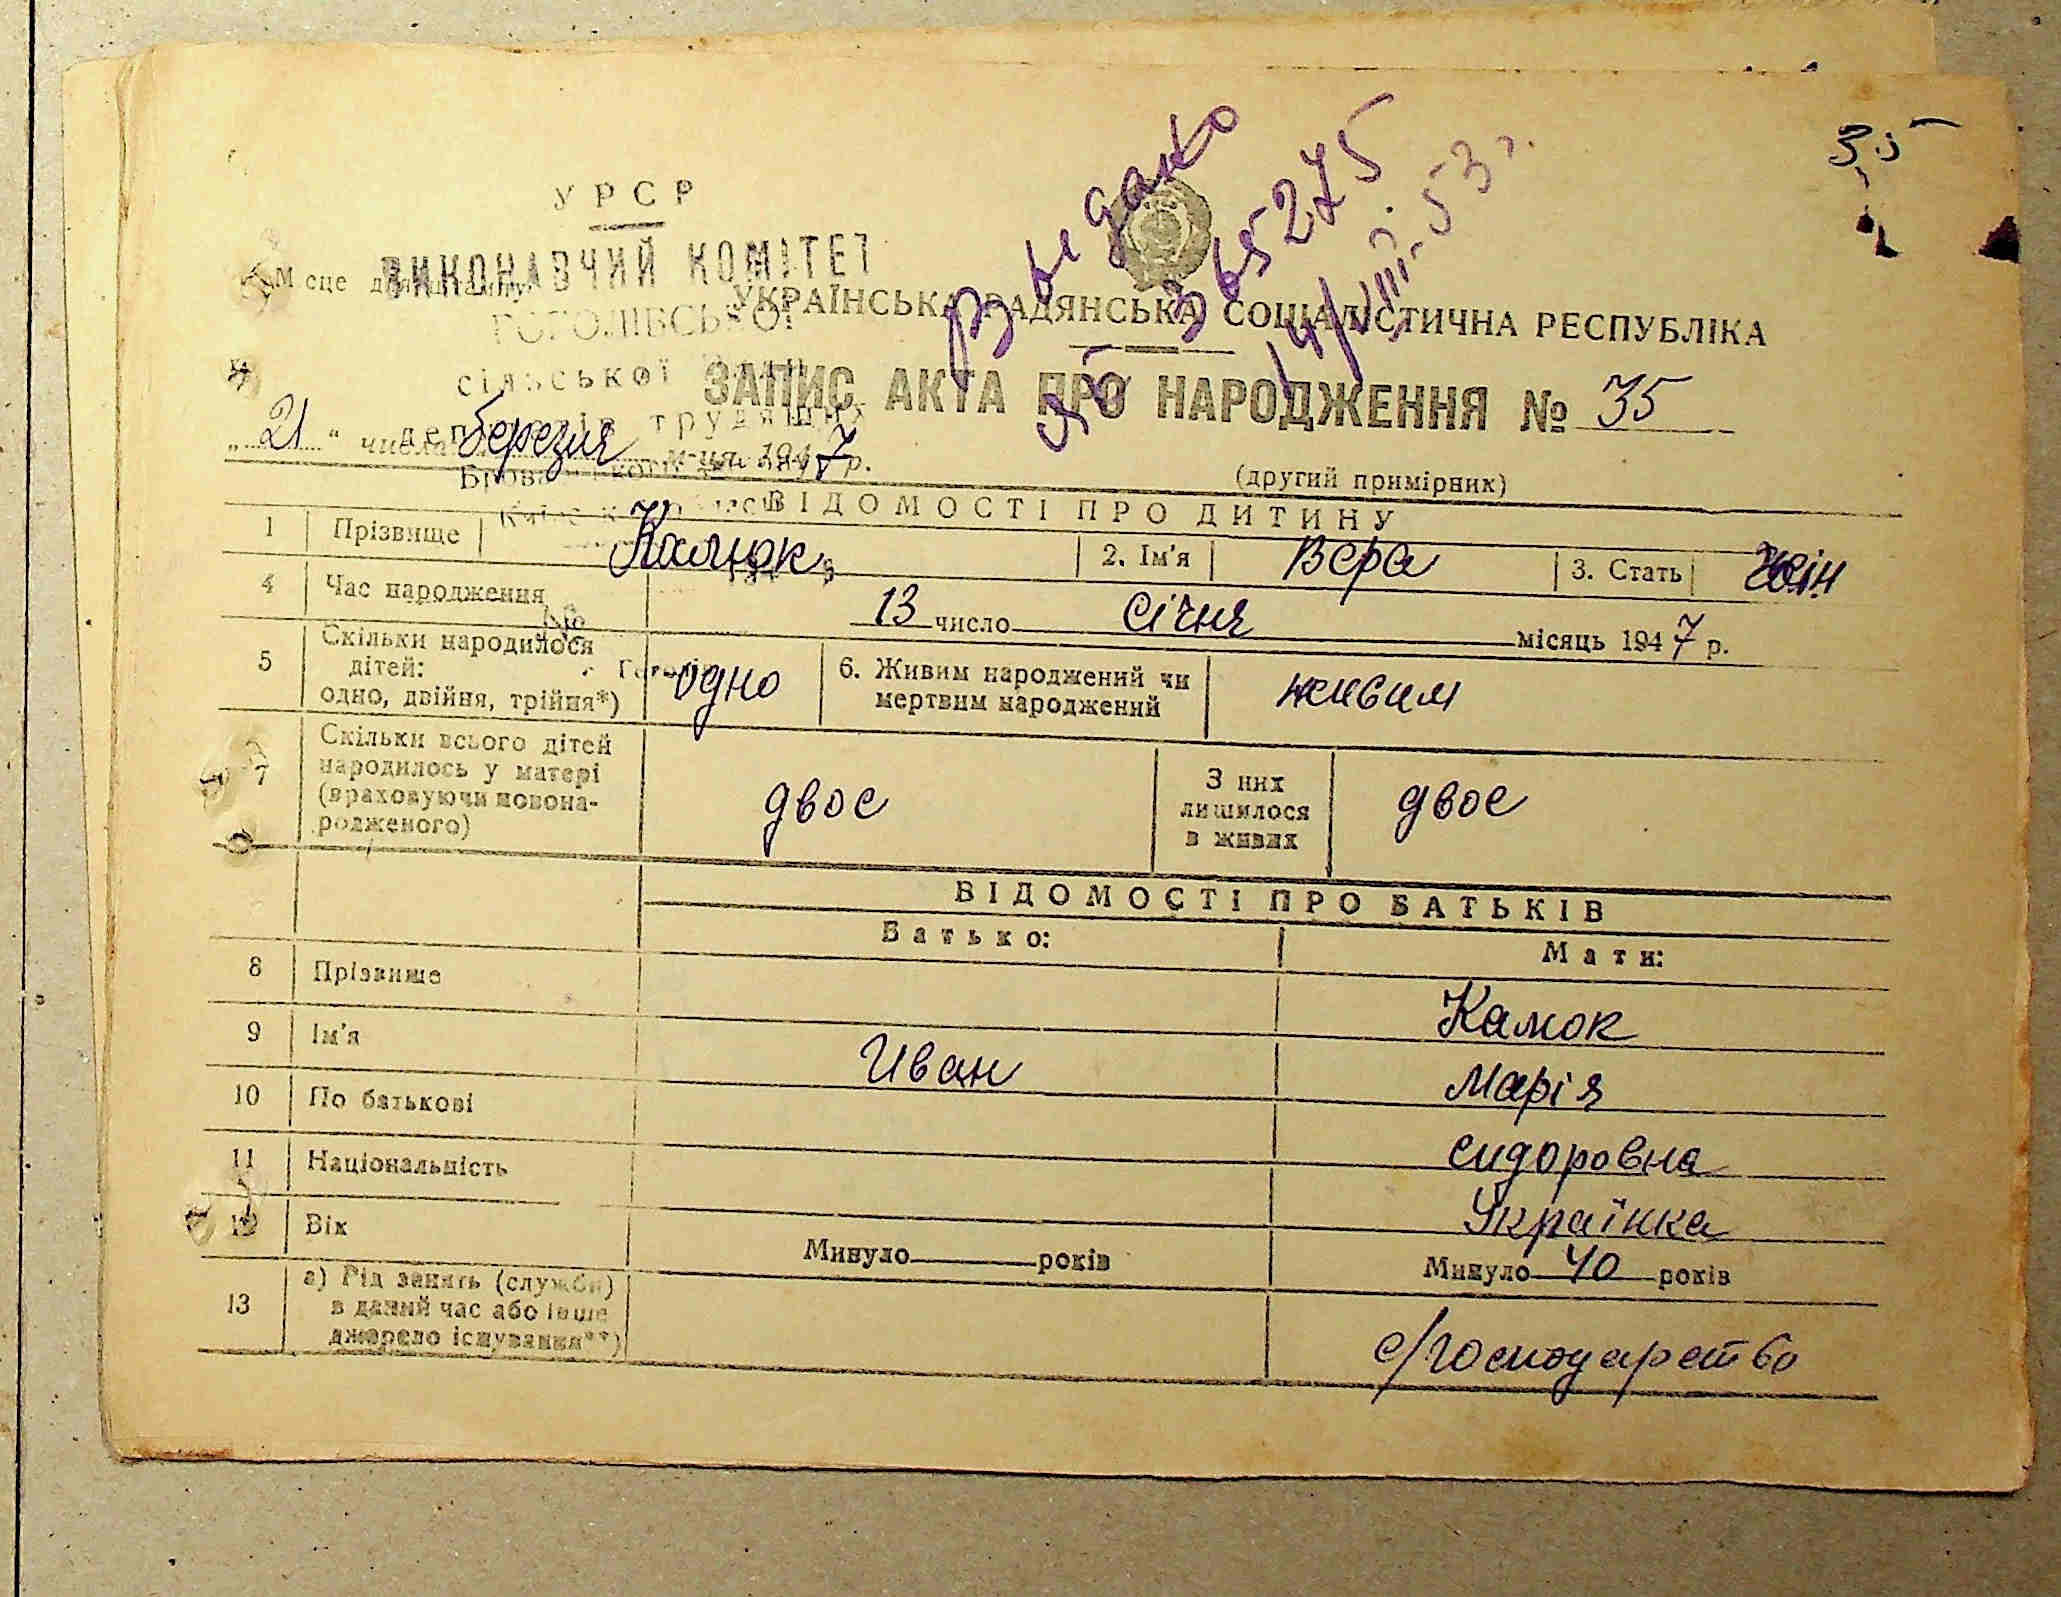 35
Выдано
ЯБ 365275
14/VIII-53 г.
УРСР
ВИКОНАВЧИЙ КОМІТЕТ
Місце
ГОГОЛІВСЬКОЇ
сільської
трудящих
УКРАЇНСЬКА РАДЯНСЬКА СОЦІАЛІСТИЧНА РЕСПУБЛІКА
ЗАПИС АКТА ПРО НАРОДЖЕННЯ № 35
„21" числа березня м-ця 1947 р.
(другий примірник)
ВІДОМОСТІ ПРО ДИТИНУ
1 Прізвище 2. Ім'я Вера 3. Стать жін
4 Час народження 13 число січня місяць 1947 р.
5 Скільки народилося дітей: одно, двійня, трійня*) одно 6. Живим народжений чи мертвим народжений живим
7 Скільки всього дітей народилось у матері (враховуючи новонародженого) двоє З них лишилося в живих двоє
ВІДОМОСТІ ПРО БАТЬКІВ
Батько: Мати:
8 Прізвище Камок
9 Ім'я Иван Марія
10 По батькові Сидоровна
11 Національність Українка
12 Вік Минуло років Минуло 40 років
13 а) Рід занять (служби) в даний час або інше джерело існування**) с/господарство